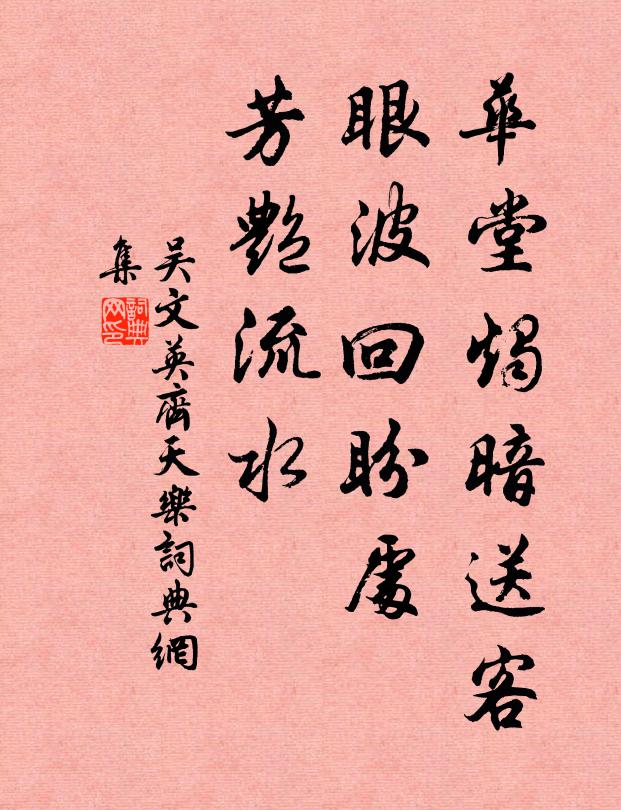 華堂燭暗送客
眼波回盼處
芳艷流水
吳文英齊天樂詞典網
集
詞典
网印